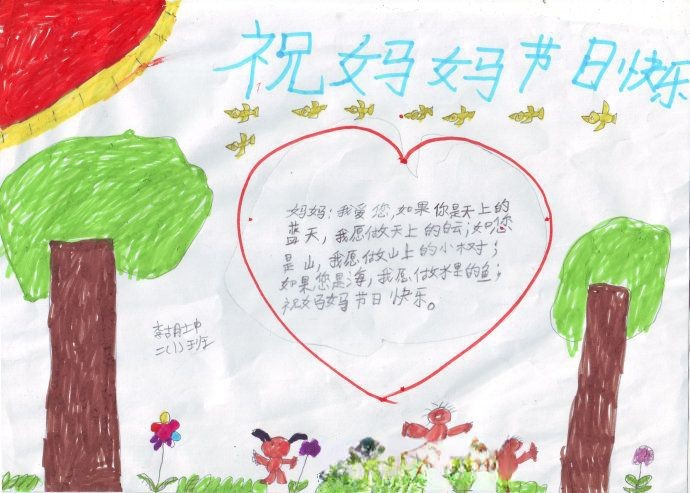 祝妈妈节日快乐
妈妈:我爱您,如果你是天上的
蓝天,我愿做天上的白云;如您
是山,我愿做山上的小树;
如果您是海,我愿做水里的鱼;
祝妈妈节日快乐。
李
二(1)班